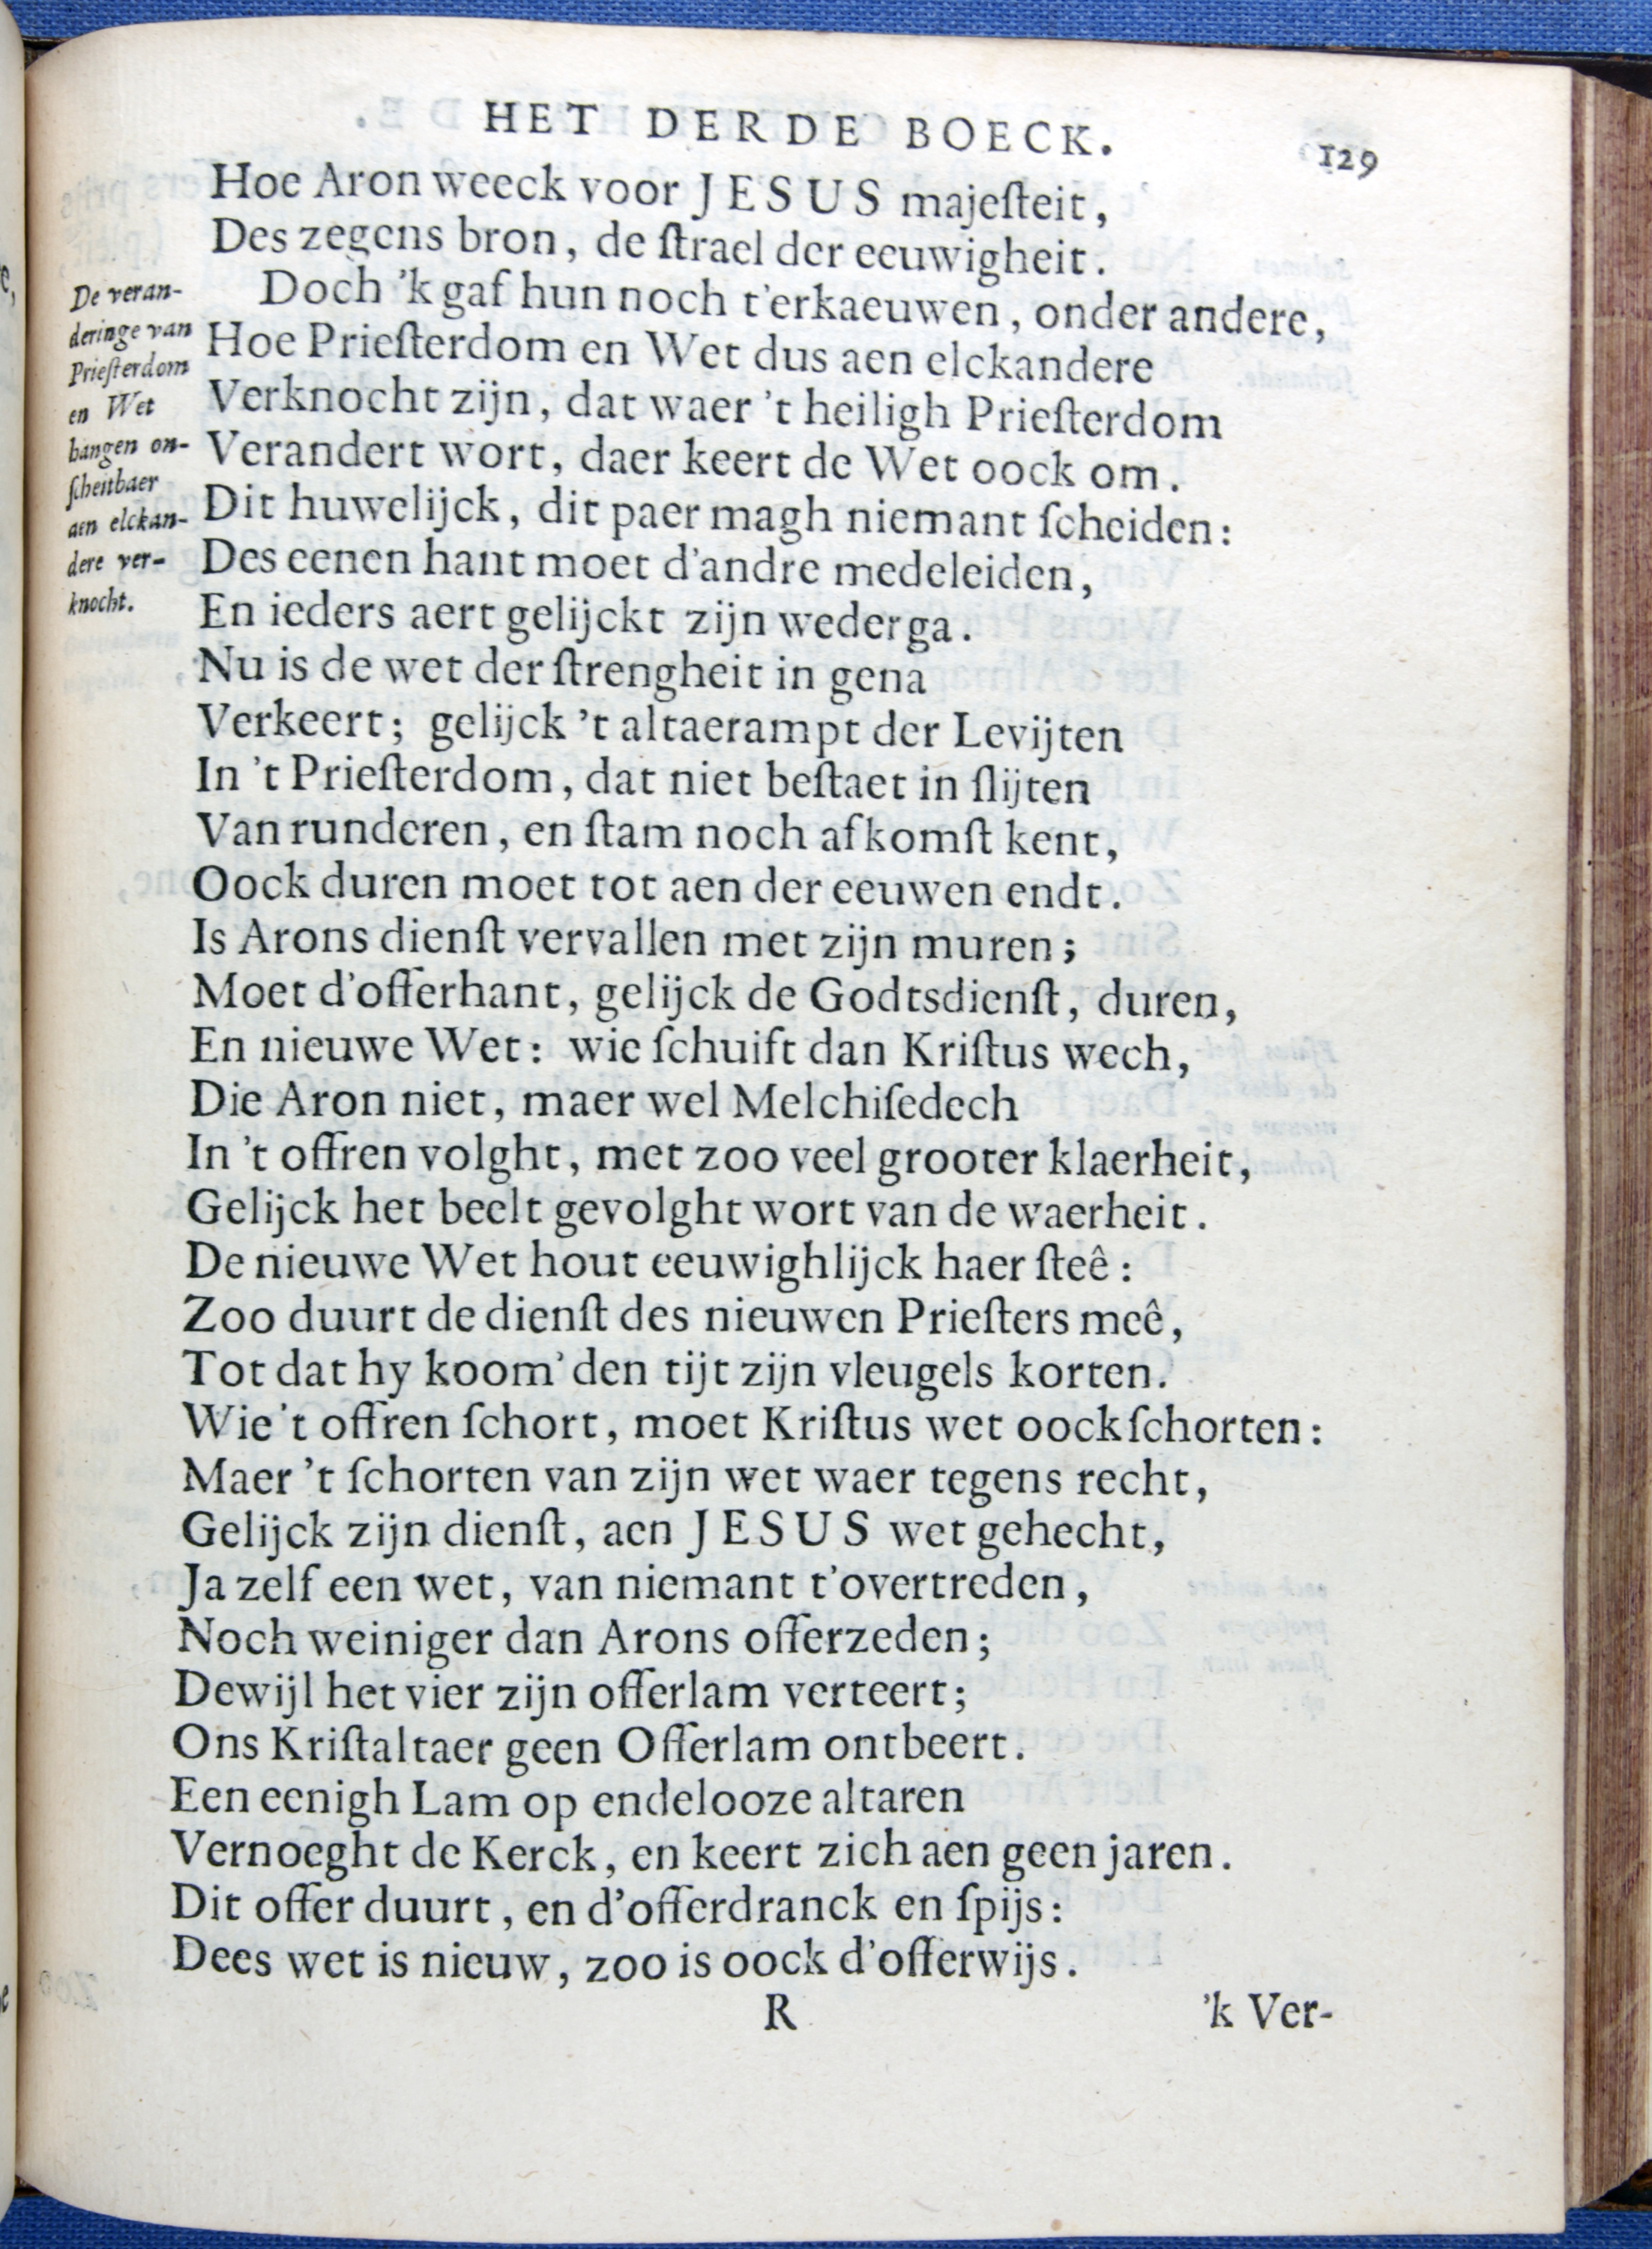 HET DERDE BOECK.
129
Hoe Aron weeck voor JESUS majeſteit,
Des zegens bron, de ſtrael der eeuwigheit.
De veran-
deringe van
Prieſterdom
en Wet
hangen on-
ſcheitbaer
aen elckan-
dere ver-
knocht.
Doch 'k gaf hun noch t'erkaeuwen, onder andere,
Hoe Prieſterdom en Wet dus aen elckandere
Verknocht zijn, dat waer 't heiligh Prieſterdom
Verandert wort, daer keert de Wet oock om.
Dit huwelijck, dit paer magh niemant ſcheiden:
Des eenen hant moet d'andre medeleiden,
En ieders aert gelijckt zijn wederga.
Nu is de wet der ſtrengheit in gena
Verkeert; gelijck 't altaerampt der Levijten
In 't Prieſterdom, dat niet beſtaet in ſlijten
Van runderen, en ſtam noch afkomſt kent,
Oock duren moet tot aen der eeuwen endt.
Is Arons dienſt vervallen met zijn muren;
Moet d'offerhant, gelijck de Godtsdienſt, duren,
En nieuwe Wet: wie ſchuift dan Kriſtus wech,
Die Aron niet, maer wel Melchiſedech
In 't offren volght, met zoo veel grooter klaerheit,
Gelijck het beelt gevolght wort van de waerheit.
De nieuwe Wet hout eeuwighlijck haer ſteê:
Zoo duurt de dienſt des nieuwen Prieſters meê,
Tot dat hy koom' den tijt zijn vleugels korten.
Wie 't offren ſchort, moet Kriſtus wet oock ſchorten:
Maer 't ſchorten van zijn wet waer tegens recht,
Gelijck zijn dienſt, aen JESUS wet gehecht,
Ja zelf een wet, van niemant t'overtreden,
Noch weiniger dan Arons offerzeden;
Dewijl het vier zijn offerlam verteert;
Ons Kriſtaltaer geen Offerlam ontbeert.
Een eenigh Lam op endelooze altaren
Vernoeght de Kerck, en keert zich aen geen jaren.
Dit offer duurt, en d'offerdranck en ſpijs:
Dees wet is nieuw, zoo is oock d'offerwijs.
R
'k Ver-